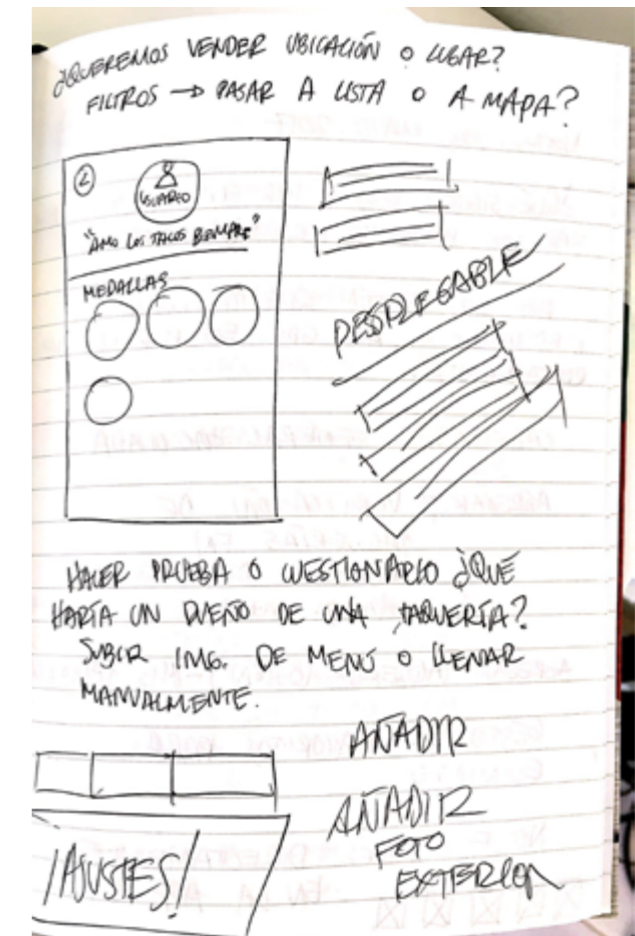 ¿QUEREMOS VENDER UBICACIÓN O LUGAR?
FILTROS → PASAR A LISTA O A MAPA?
USUARIO
"AMO LOS TACOS SIEMPRE"
MEDALLAS
DESPLEGABLE
HACER PRUEBA O CUESTIONARIO ¿QUÉ
HARÍA UN DUEÑO DE UNA TAQUERÍA?
SUBIR IMG. DE MENÚ O LLENAR
MANUALMENTE.
AÑADIR
¡AJUSTES!
AÑADIR
FOTO
EXTERIOR